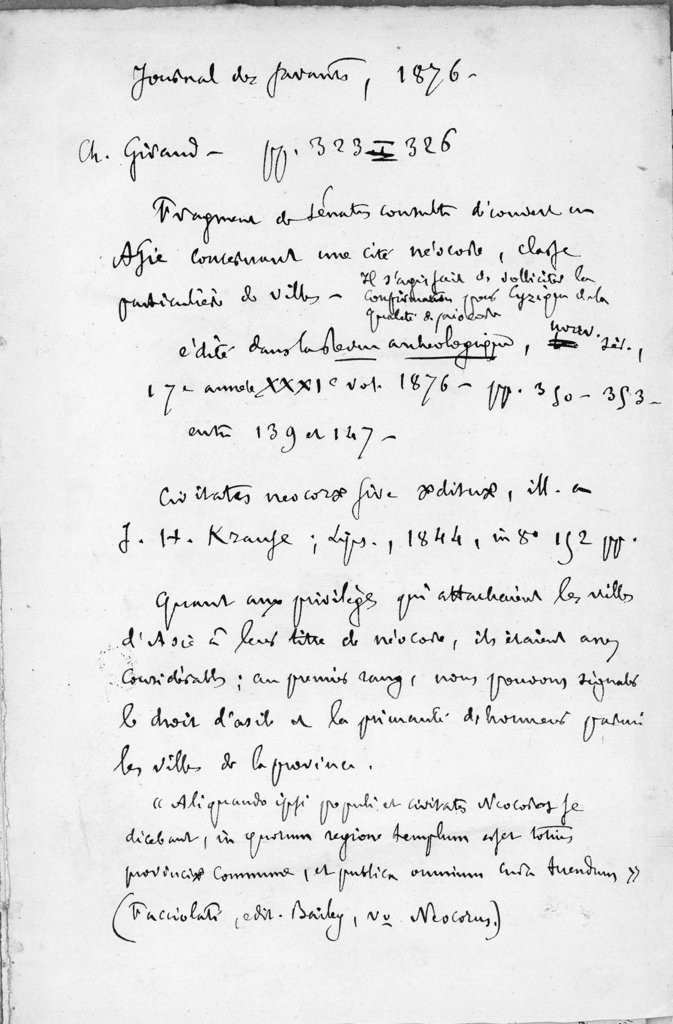 Journal des Savants, 1876 –
Ch. Giraud – pp. 323 à 326
Fragment de Sénatus consulte découvert en
Asie concernant une cité néocore, classe
particulière de villes –
Il s'agissait de solliciter la
confirmation pour Cyzique de la
qualité de néocore
édité dans la Revue archéologique, nouv. sér.,
17e année XXXIe vol. 1876 – pp. 350 – 353 –
entre 139 et 147 –
Civitates neocoræ sive ædituæ, ill. a
J. H. Krause ; Lips., 1844, in 8o 152 pp.
Quant aux privilèges qui attachaient les villes
d'Asie à leur titre de néocore, ils étaient assez
considérables ; au premier rang, nous pouvons signaler
le droit d'asile et la primauté d'honneur parmi
les villes de la province.
« Aliquando ipsi populi et civitates Neocoros se
dicebant, in quorum regione templum esset totius
provinciæ commune, et publica omnium cura tuendum »
(Facciolati, edit. Bailey, vo Neocorus.)